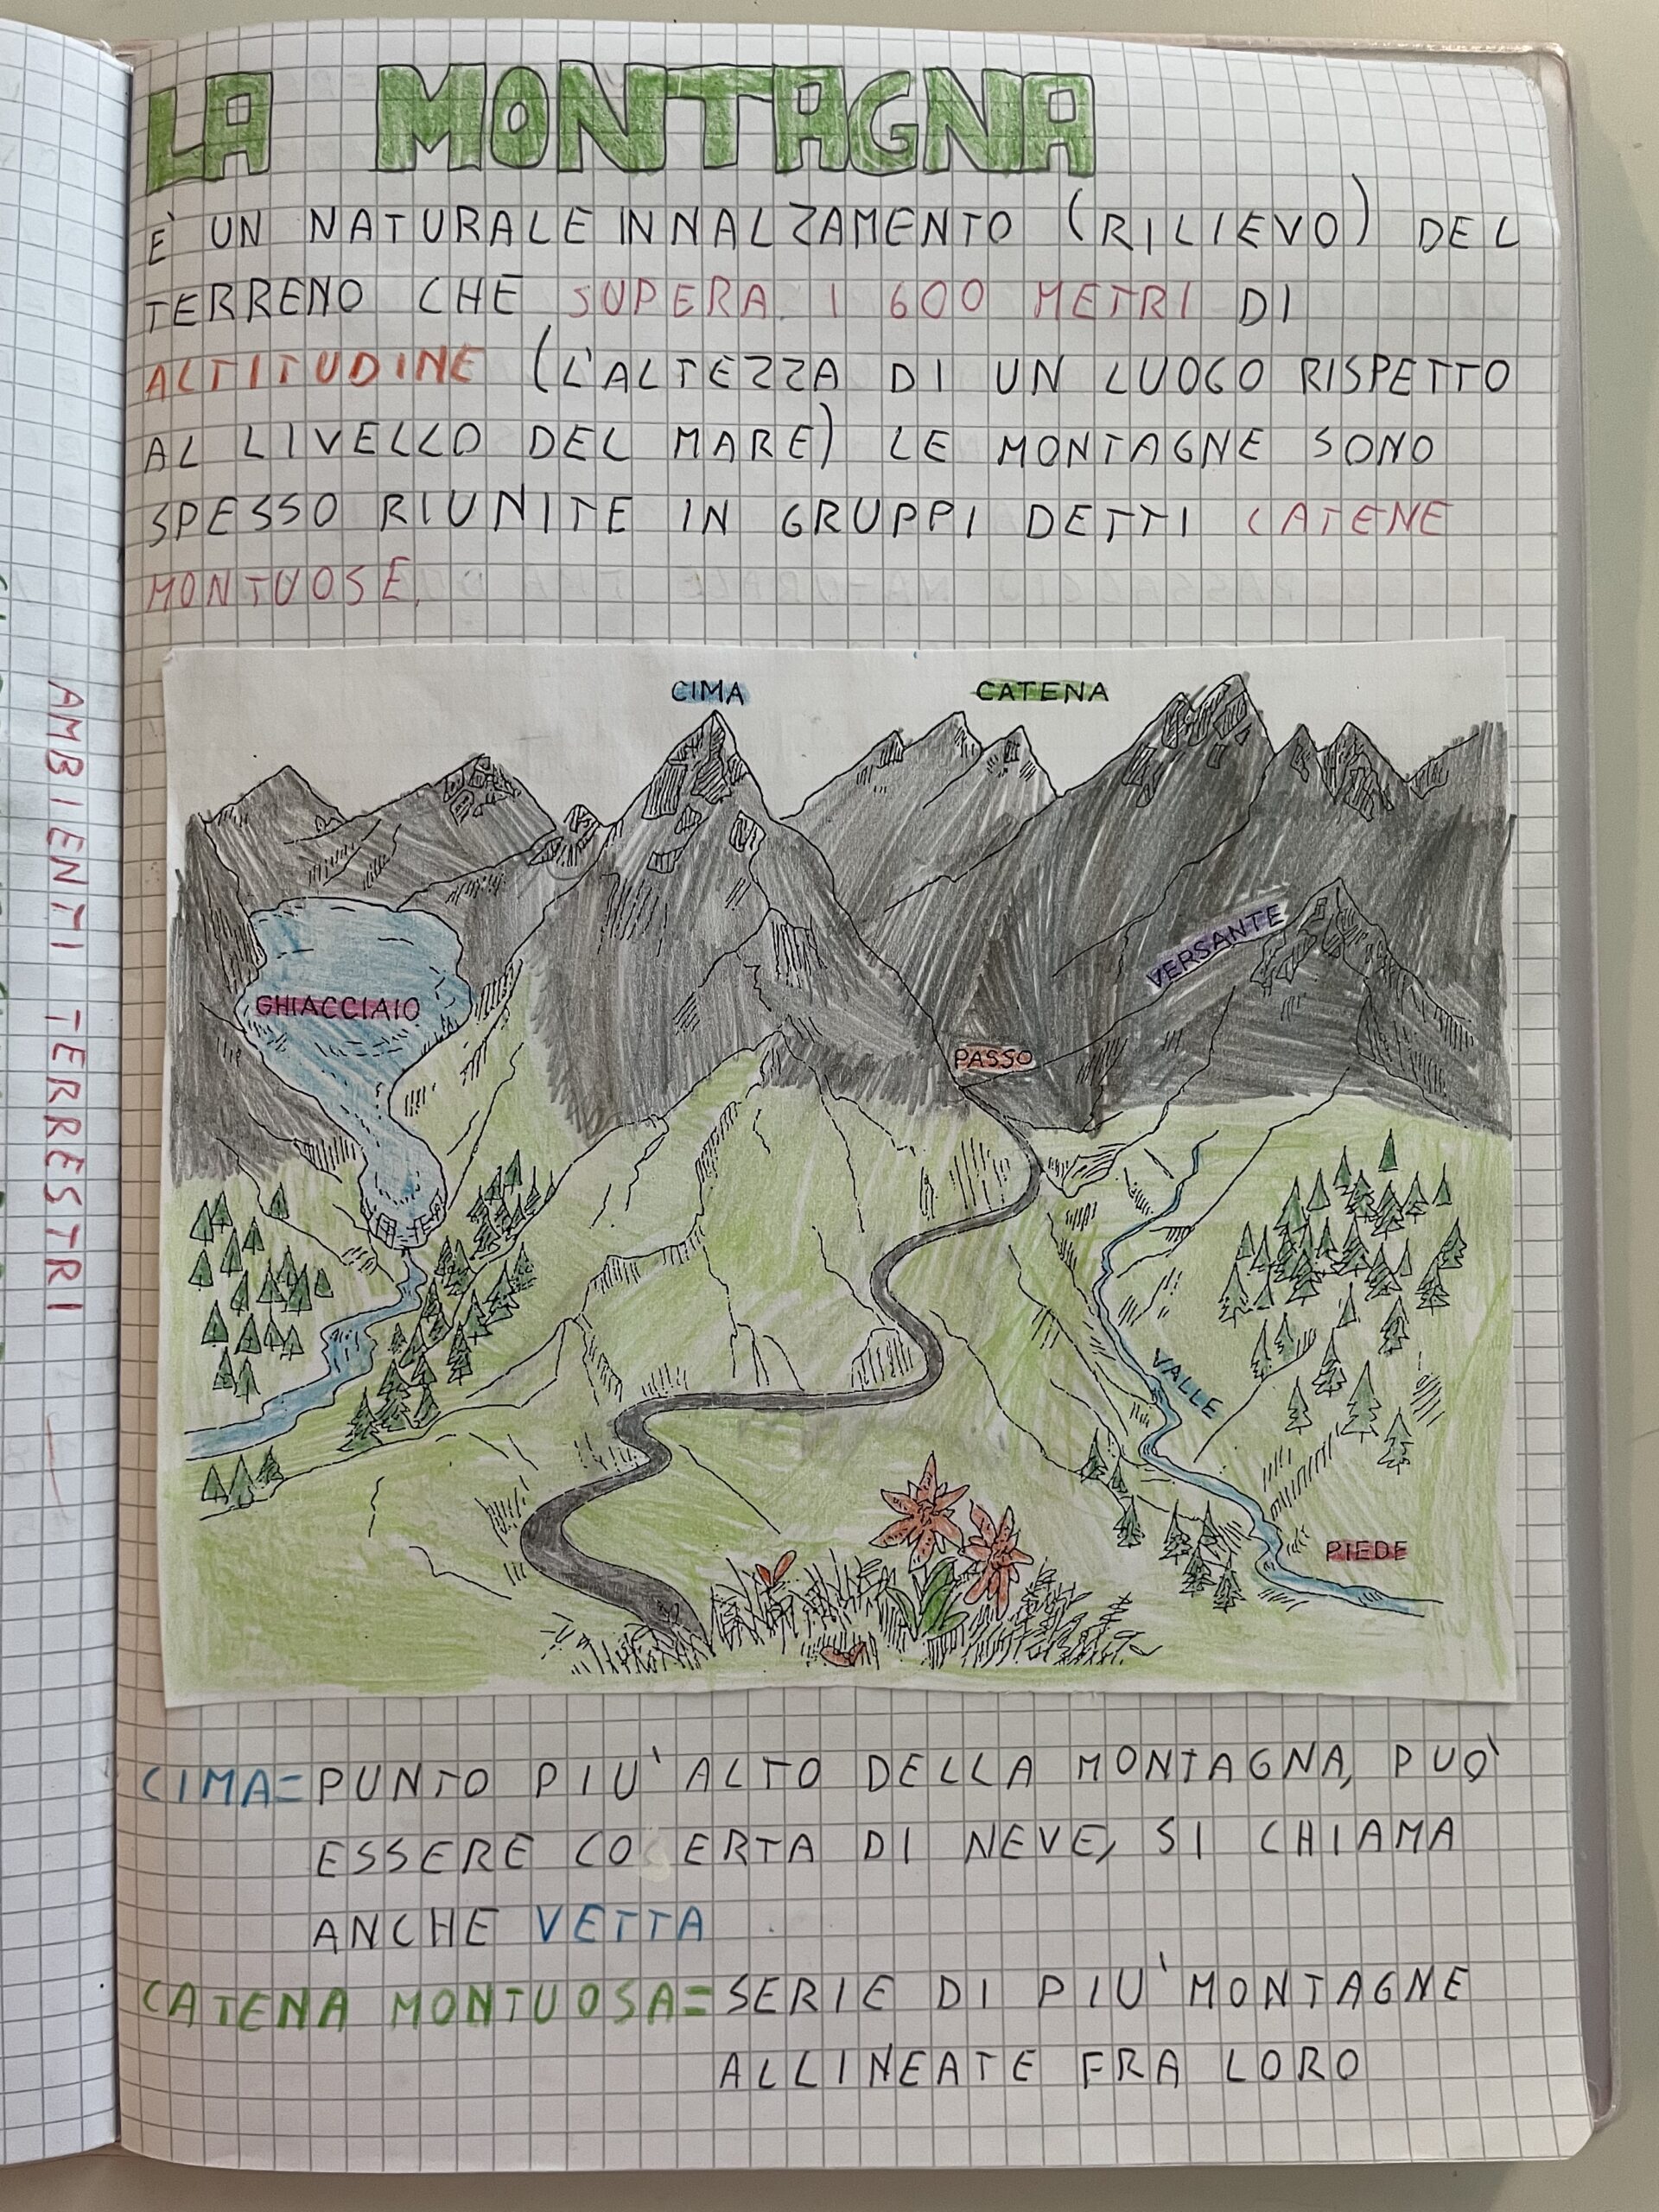 AMBIENTI TERRESTRI
LA MONTAGNA
È UN NATURALE INNALZAMENTO (RILIEVO) DEL
TERRENO CHE SUPERA I 600 METRI DI
ALTITUDINE (L'ALTEZZA DI UN LUOGO RISPETTO
AL LIVELLO DEL MARE) LE MONTAGNE SONO
SPESSO RIUNITE IN GRUPPI DETTI CATENE
MONTUOSE.
CIMA
CATENA
VERSANTE
GHIACCIAIO
PASSO
VALLE
PIEDE
CIMA= PUNTO PIU' ALTO DELLA MONTAGNA, PUO'
ESSERE DI NEVE, SI CHIAMA
ANCHE VETTA
CATENA MONTUOSA= SERIE DI PIU' MONTAGNE
ALLINEATE FRA LORO